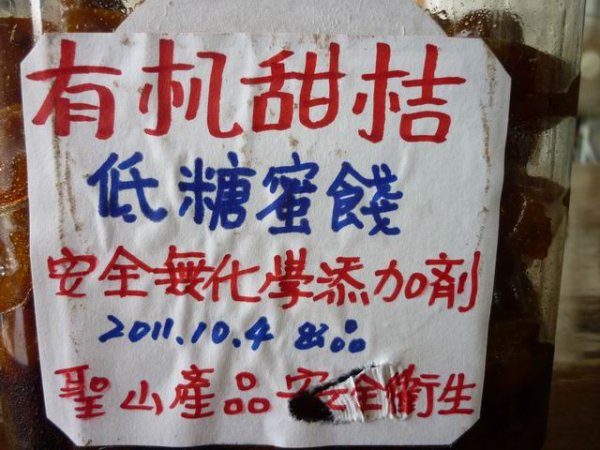 有机甜桔
低糖蜜餞
安全無化學添加剂
2011.10.4 出品
聖山產品安全衛生